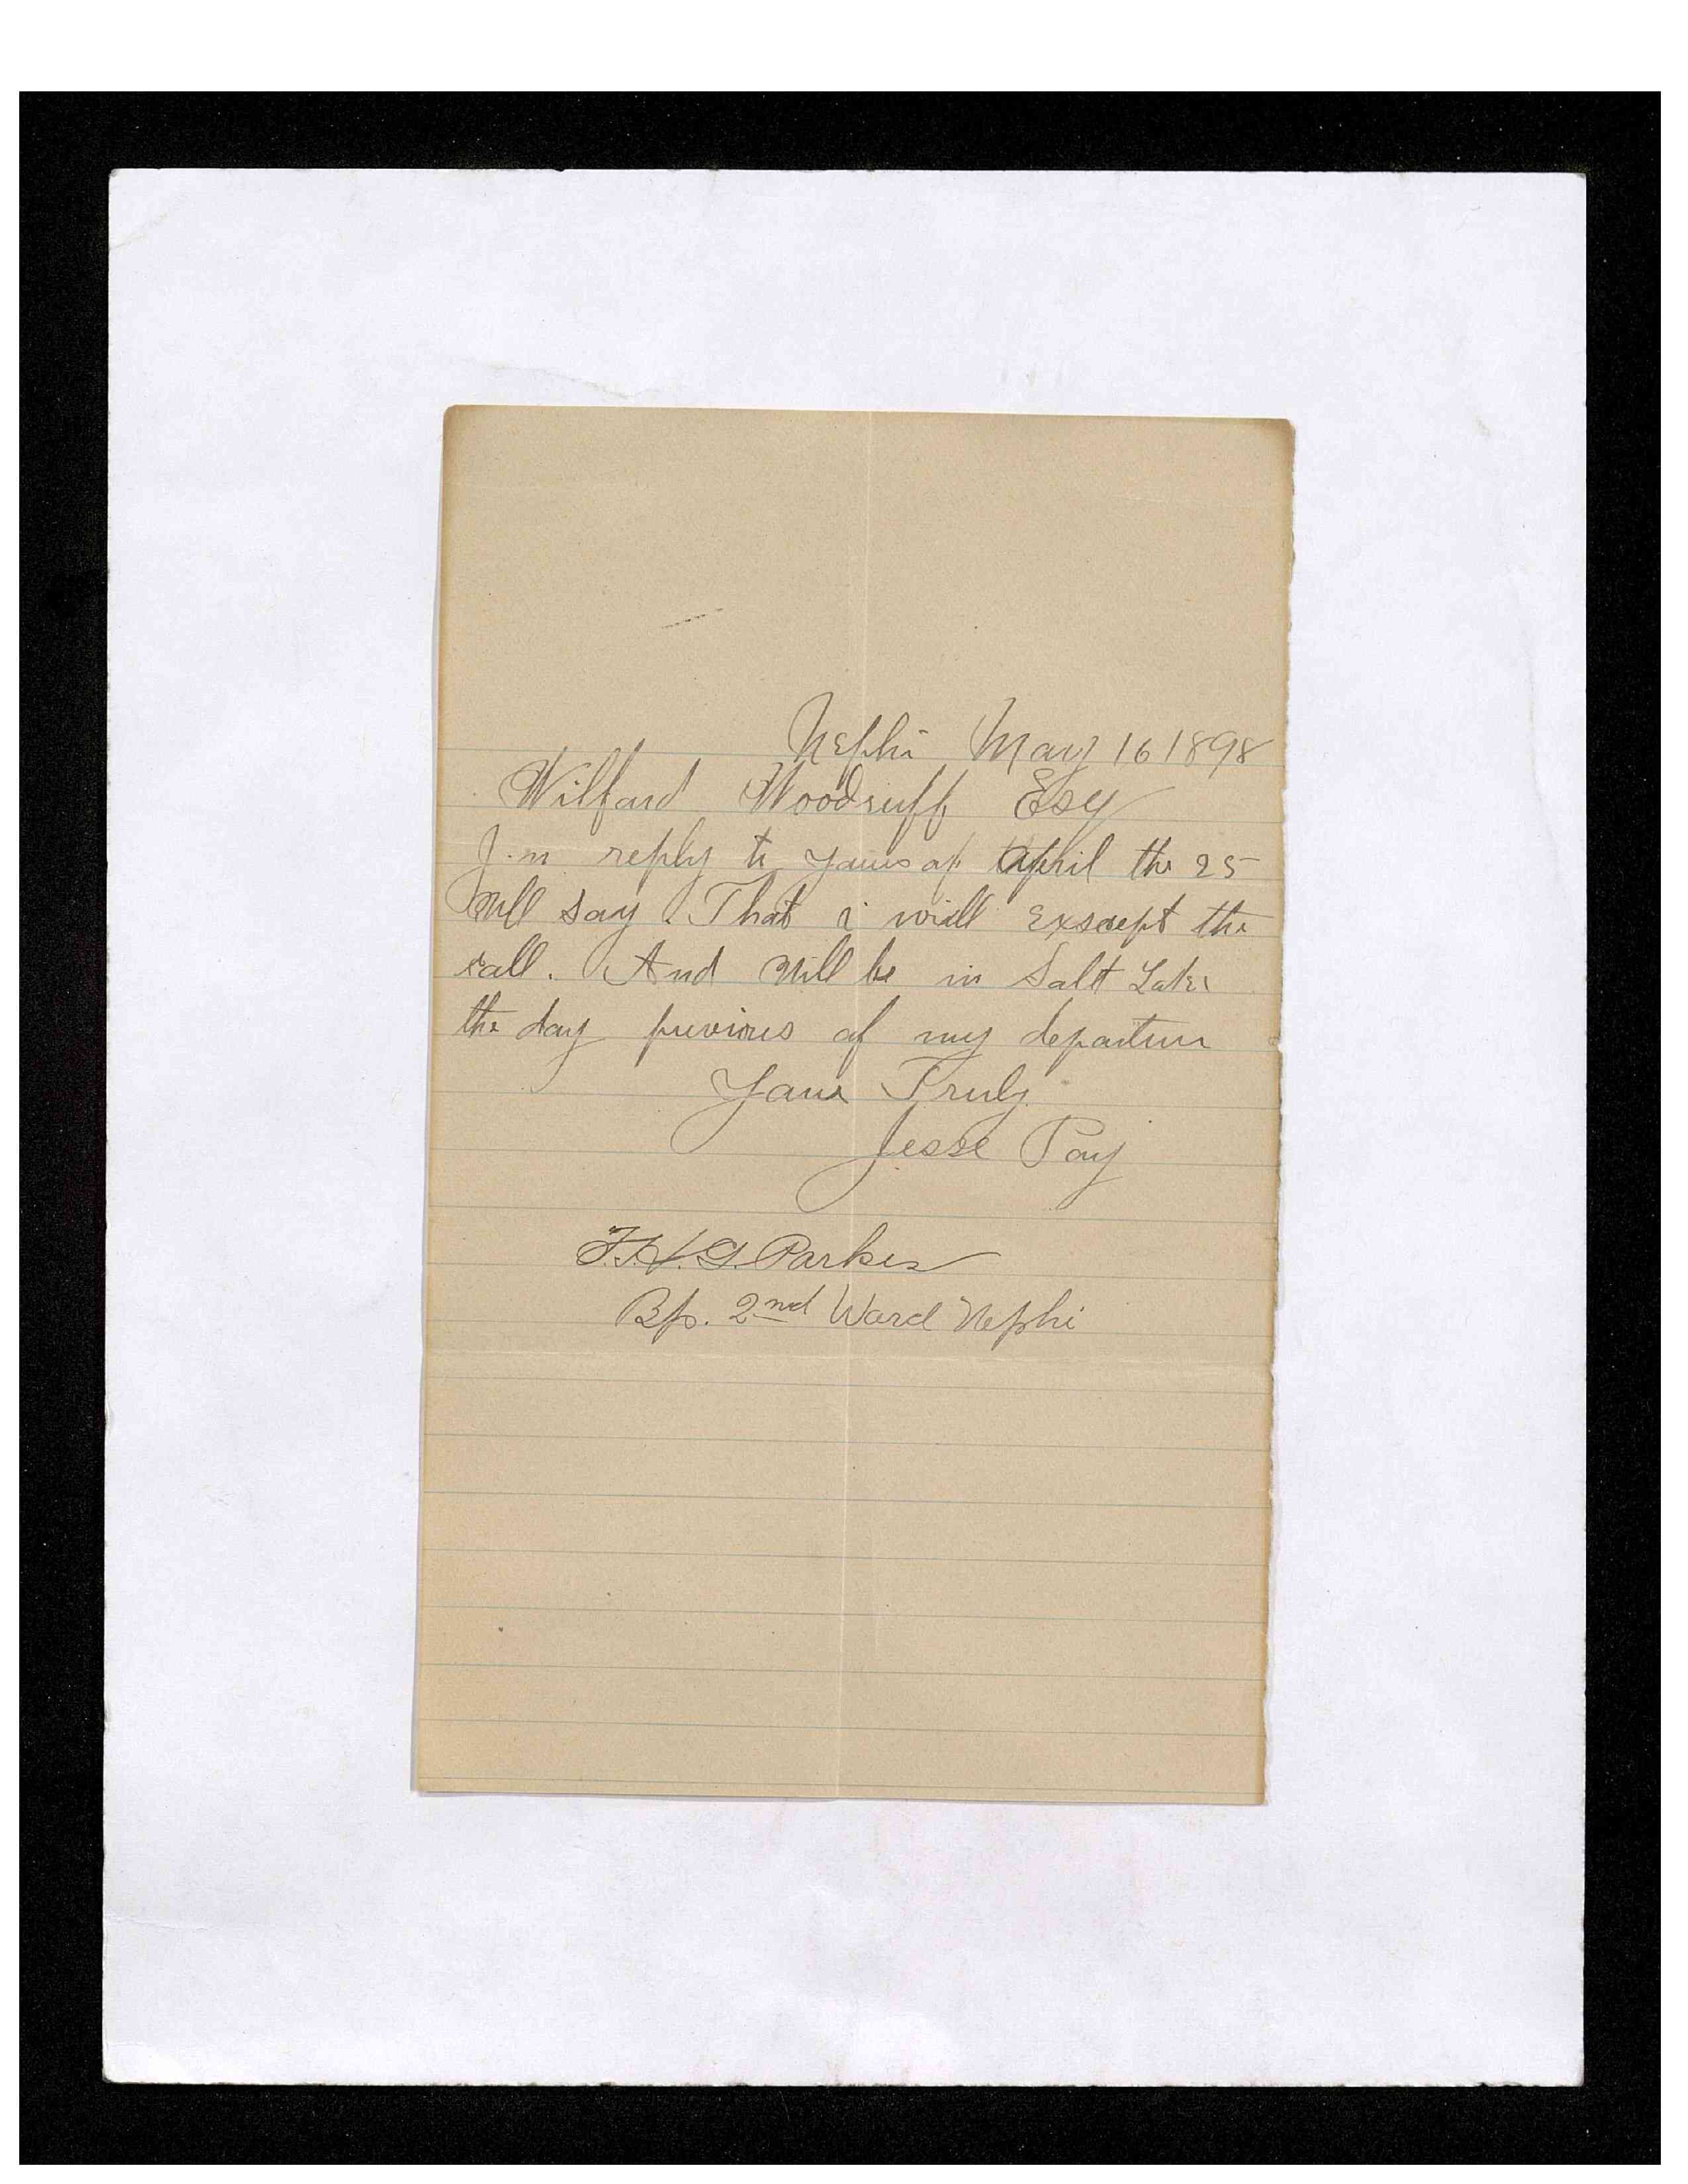 Nephi May 16 1898
Wilford Woodruff Esq
In reply to yours of April the 25
Will say. That i will Exscept the
call. And Will be in Salt Lake
the day previous of my departure
Yours Truly
Jesse Pay
Parkes
Bp. 2nd Ward Nephi